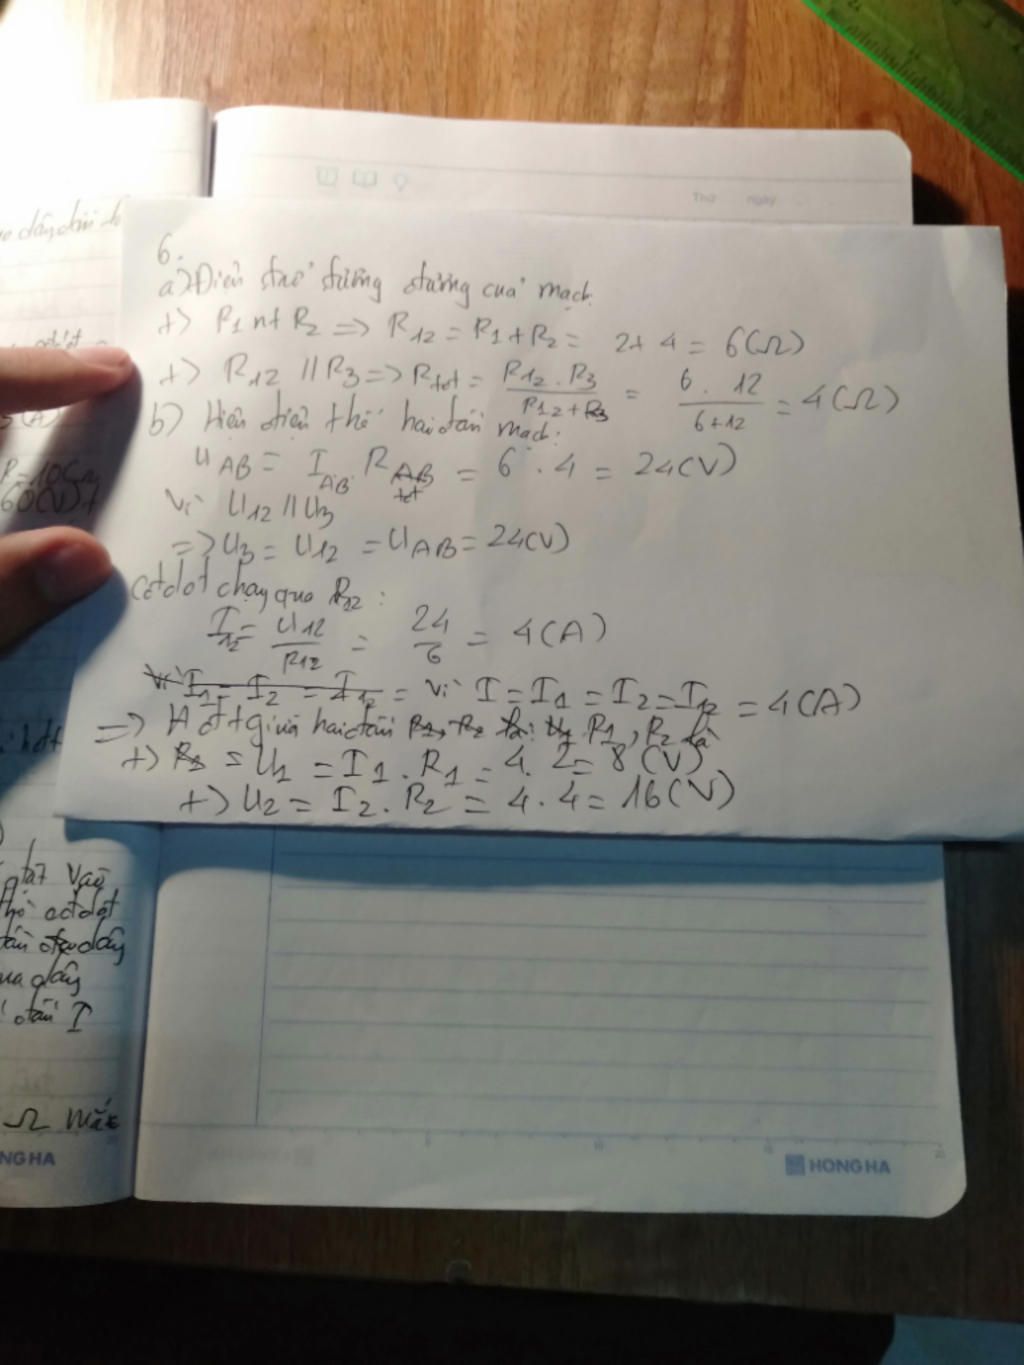 Thứ ngày
6.
a) Điện trở tương đương của mạch.
+) R1 nt R2 => R12 = R1 + R2 = 2 + 4 = 6(Ω)
+) R12 // R3 => Rtot = R12 . R3 / R12 + R3 = 6 . 12 / 6 + 12 = 4(Ω)
b) Hiệu điện thế hai đầu mạch:
UAB = IAB . RAB tot = 6 . 4 = 24(V)
Vì U12 // U3
=> U3 = U12 = UAB = 24(V)
Cđdđ chạy qua R12 :
I12 = U12 / R12 = 24 / 6 = 4(A)
Vì I1 = I2 = I12 = Vì I = I1 = I2 = I12 = 4(A)
=> Hđt giữa hai đầu R1, R2 là: U1 R1, R2 là
+) R1 = U1 = I1 . R1 = 4. 2 = 8 (V)
+) U2 = I2 . R2 = 4 . 4 = 16(V)
60(V)
Ω mắc
NG HA
HONG HA